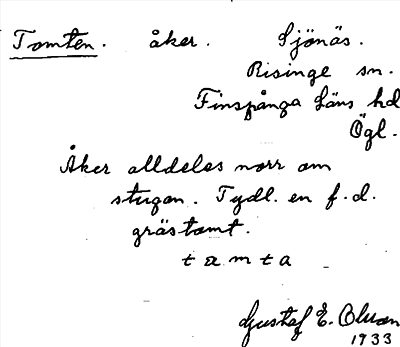 Tomten. åker. Sjönäs.
Risinge sn.
Finspånga läns hd
Ögl.
Åker alldeles norr om
stugan. Tydl. en f.d.
grästomt.
tamta
Gustaf E. Olson
1933